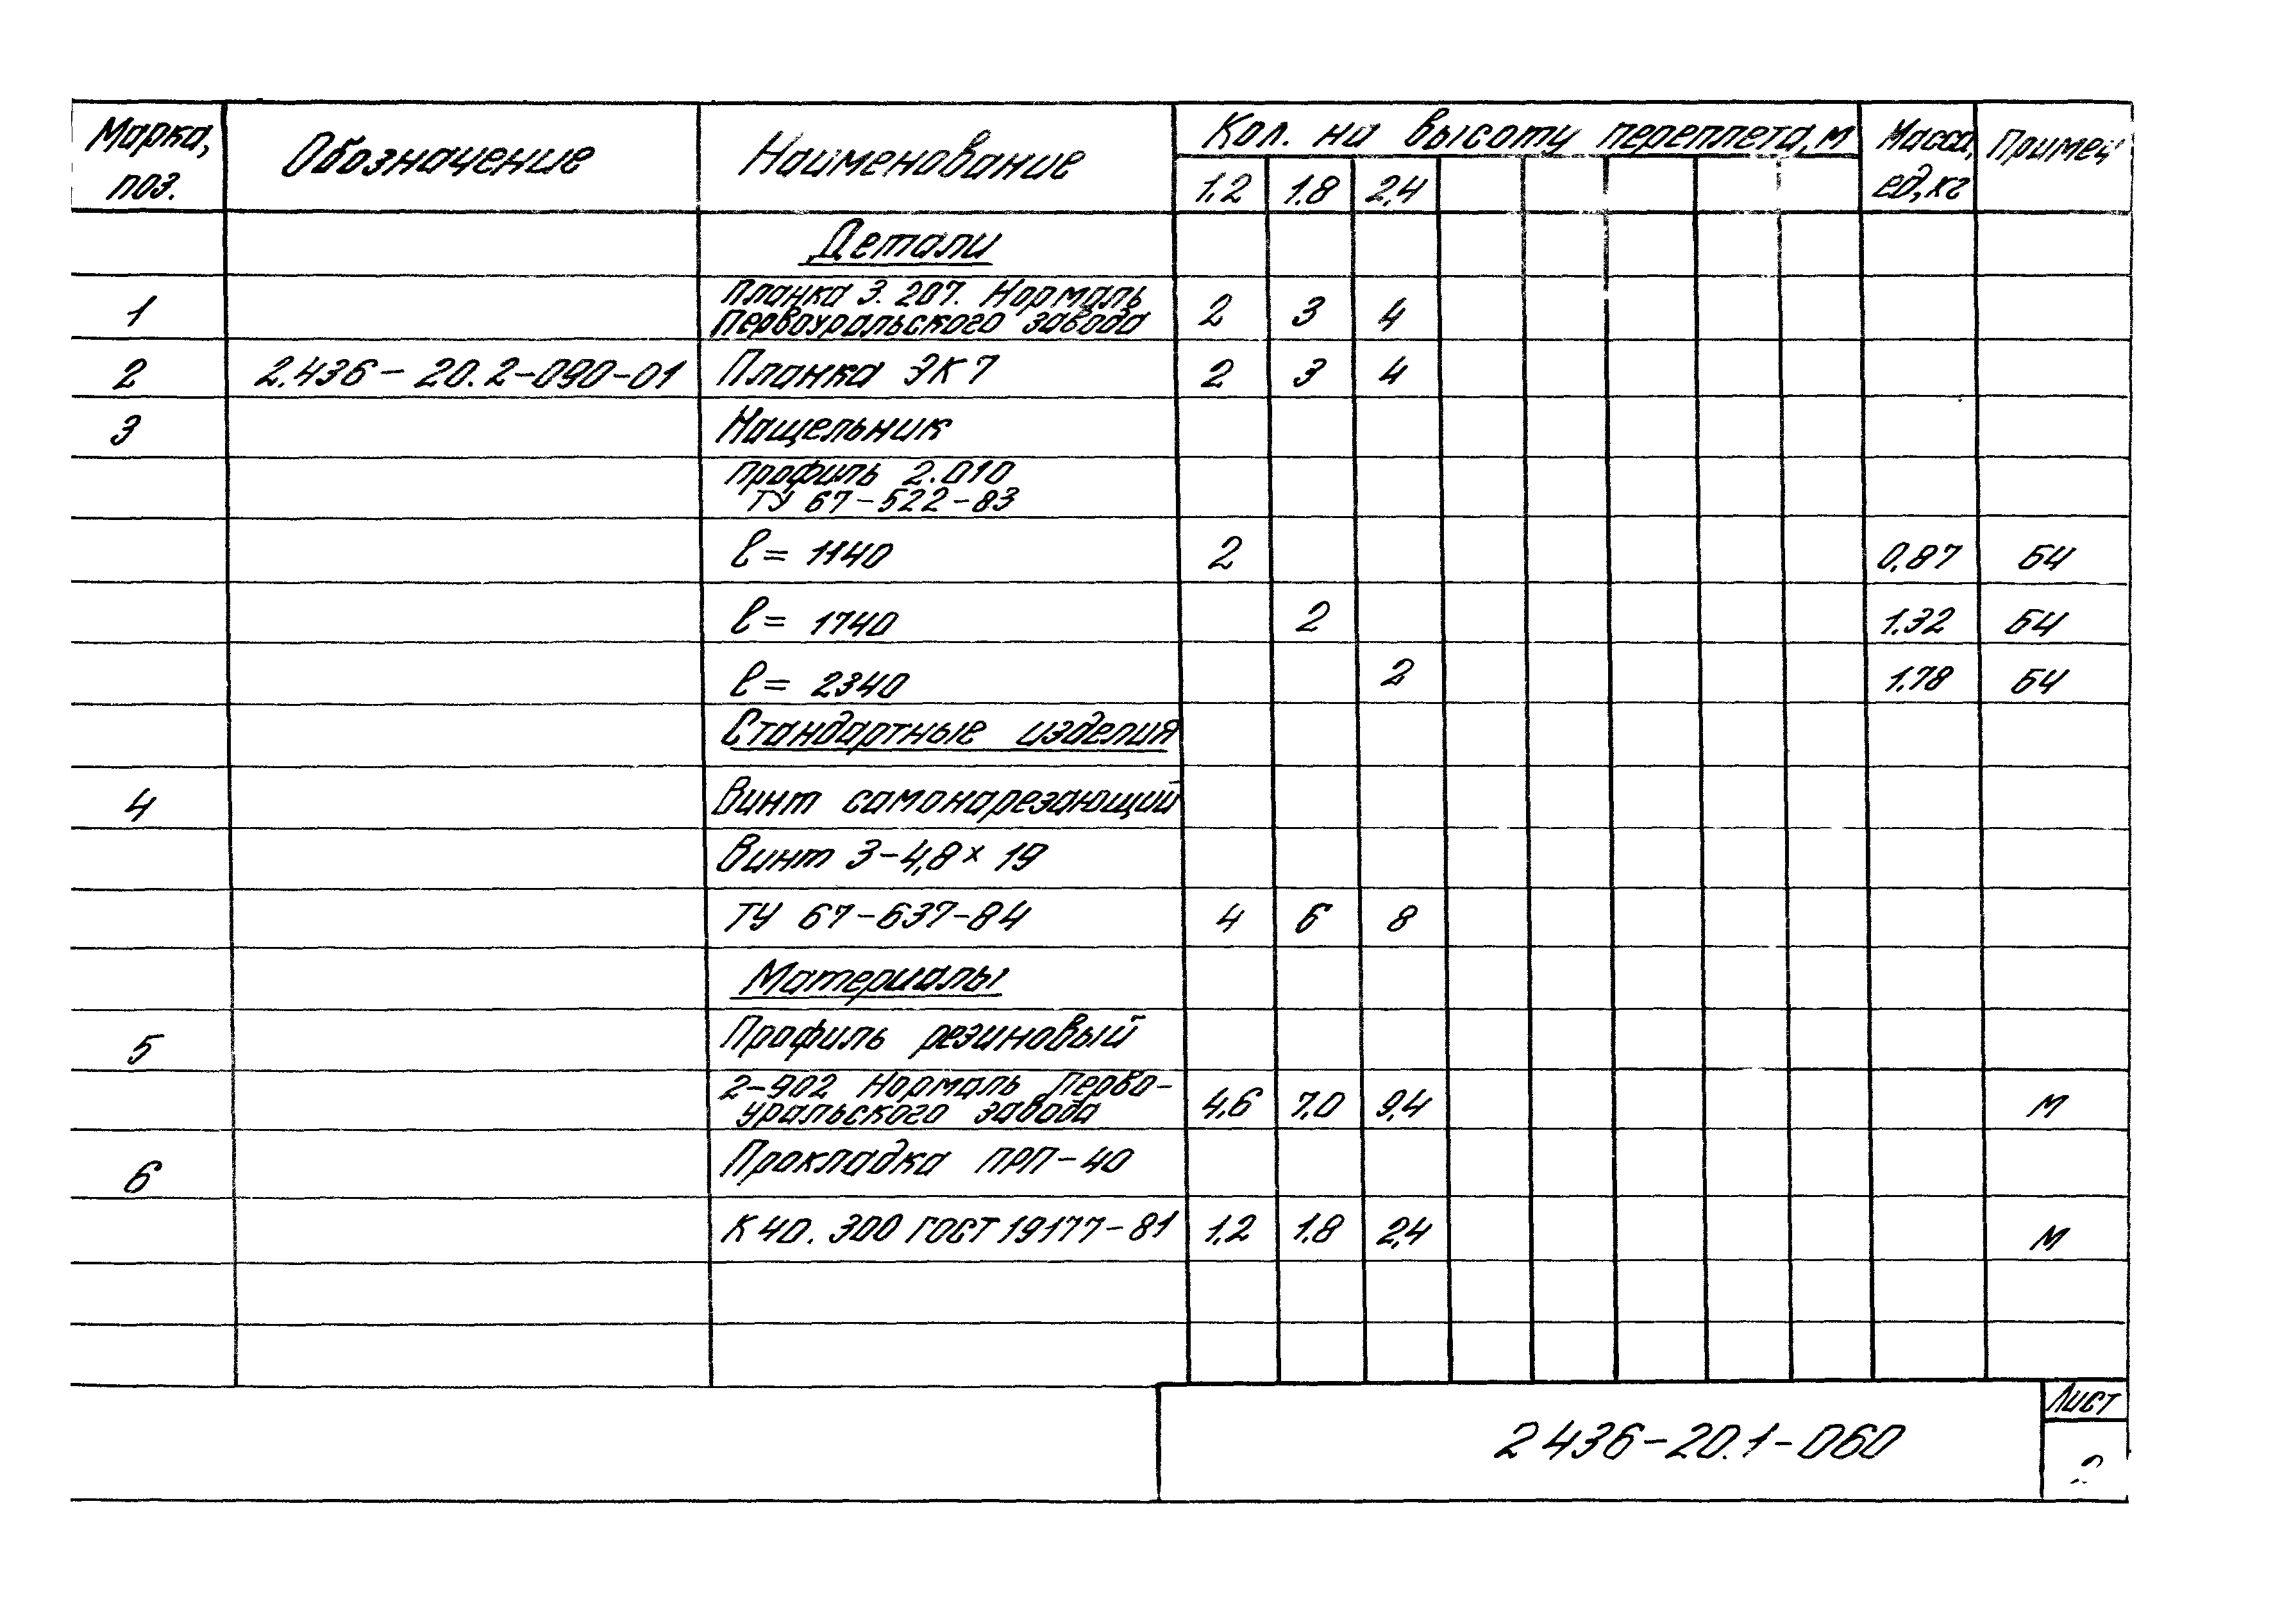 Марка, поз. Обозначение Наименование Кол. на высоту переплета, м Масса, ед, кг Примеч
1,2 1,8 2,4
Детали
1 Планка 3.207. Нормаль
Первоуральского завода 2 3 4
2 2.436-20.2-090-01 Планка ЭК7 2 3 4
3 Нащельник
Профиль 2.010
ТУ 67-522-83
ℓ= 1140 2 0,87 БЧ
ℓ= 1740 2 1.32 БЧ
ℓ= 2340 2 1.78 БЧ
Стандартные изделия
4 Винт самонарезающий
Винт 3-4,8× 19
ТУ 67-637-84 4 6 8
Материалы
5 Профиль резиновый
2-902 Нормаль Перво-
уральского завода 4,6 7,0 9,4 м
6 Прокладка ПРП-40
К 40. 300 ГОСТ 19177-81 1,2 1,8 2,4 м
2 436-20.1-060
Лист
2